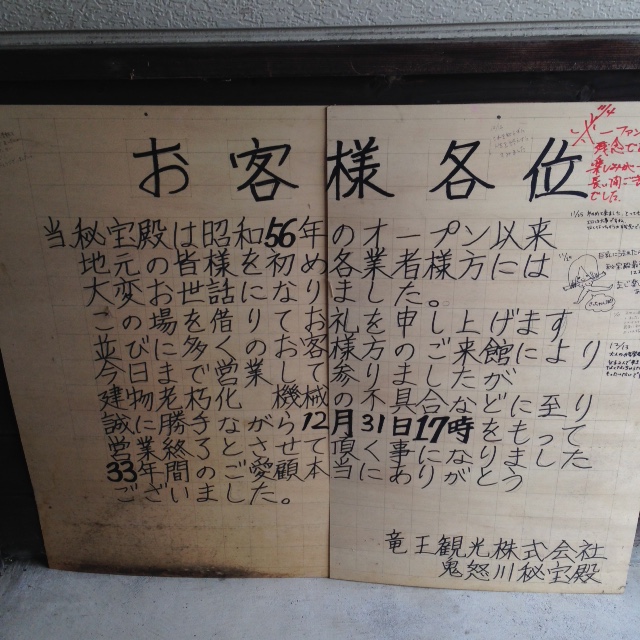 お客様各位
当秘宝殿は昭和56年のオープン以来
地元の皆様を初め各業者様方には
大変お世話になりました。
この場を借りてお礼を申し上げます
並びに多くのお客様方のご来館により
今日まで営業して参りましたが
建物老朽化 機械の不具合などに至り
誠に勝手ながら12月31日17時をもって
営業終了とさせて頂く事になりました
33年間のご愛顧本当にありがとう
ございました。
竜王観光株式会社
鬼怒川秘宝殿
残念で
でした。